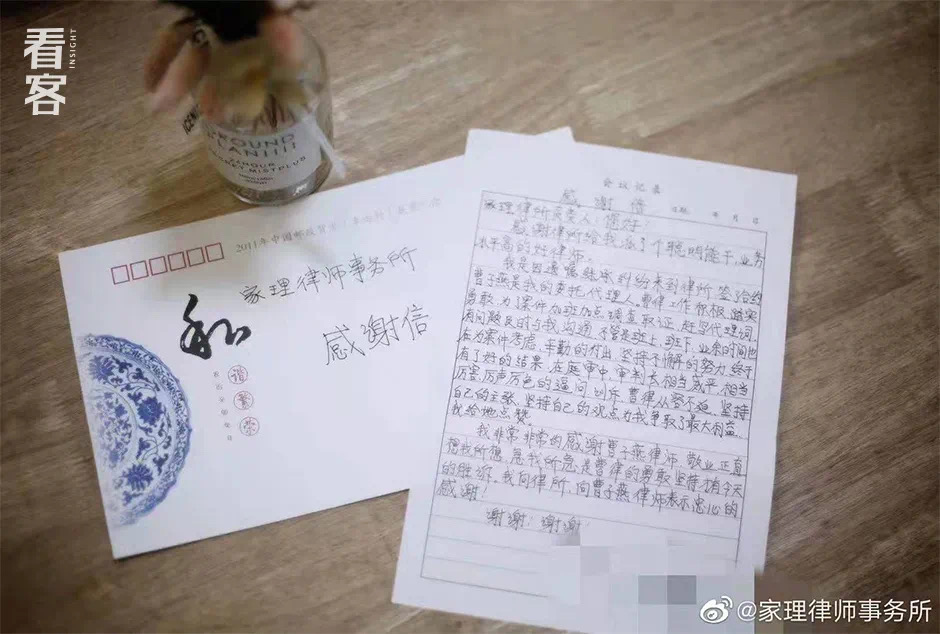 看客
INSIGHT
2011年中国邮政贺
家理律师事务所
感谢信
和
谐
会议记录
感谢信
日期： 年 月 日
家理律所负责人：您好！
感谢律所给我派了个聪明能干，业务
水平高的好律师。
我是因遗嘱继承纠纷来到律所，签约
曹子燕是我的委托代理人。曹律工作很踏实
勇敢，为案件加班加点，调查取证，赶写代理词。
有问题及时与我沟通，不管是班上，班下，业余时间也
在为案件考虑，辛勤的付出，坚持不懈的努力，终于
有了好的结果。在庭审中，审判长相当威严，相当
厉害，厉声厉色的逼问，训斥，曹律从容不迫，坚持
自己的主张，坚持自己的观点，为我争取了最大利益。
我给她点赞。
我非常非常的感谢曹子燕律师，敬业正直
想我所想，急我所急，是曹律的勇敢坚持才有今天
的胜诉。我向律所，向曹子燕律师表示忠心的
感谢！
谢谢！谢谢！
@家理律师事务所